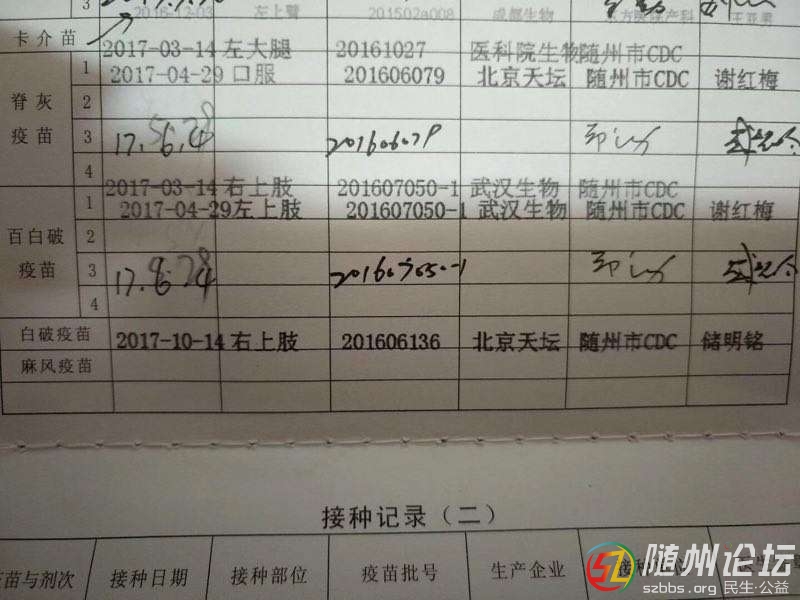 3 2016-12-03 左上臂 201502a008 成都生物
卡介苗
2017-03-14 左大腿 20161027 医科院生物 随州市CDC
脊灰疫苗
1 2017-04-29 口服 201606079 北京天坛 随州市CDC 谢红梅
2
3 17. 6. 201606079
4
2017-03-14 右上肢 201607050-1 武汉生物 随州市CDC
百白破疫苗
1 2017-04-29 左上肢 201607050-1 武汉生物 随州市CDC 谢红梅
2
3 17. 201607050-1
4
白破疫苗 2017-10-14 右上肢 201606136 北京天坛 随州市CDC 储明铭
麻风疫苗
接种记录（二）
苗与剂次 接种日期 接种部位 疫苗批号 生产企业 接种单位
随州论坛
szbbs.org 民生·公益